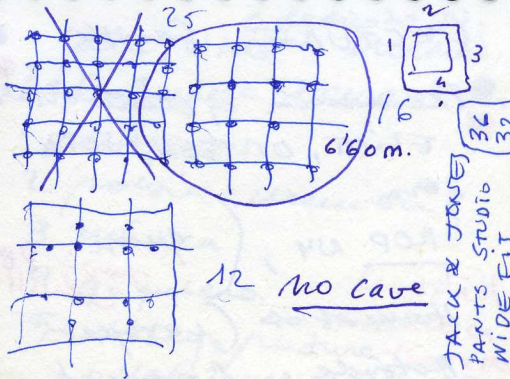 25
2
1
3
4
16
6'60 m.
12
no cave
JACK & JONES
PANTS STUDIO
WIDE FIT
36
32